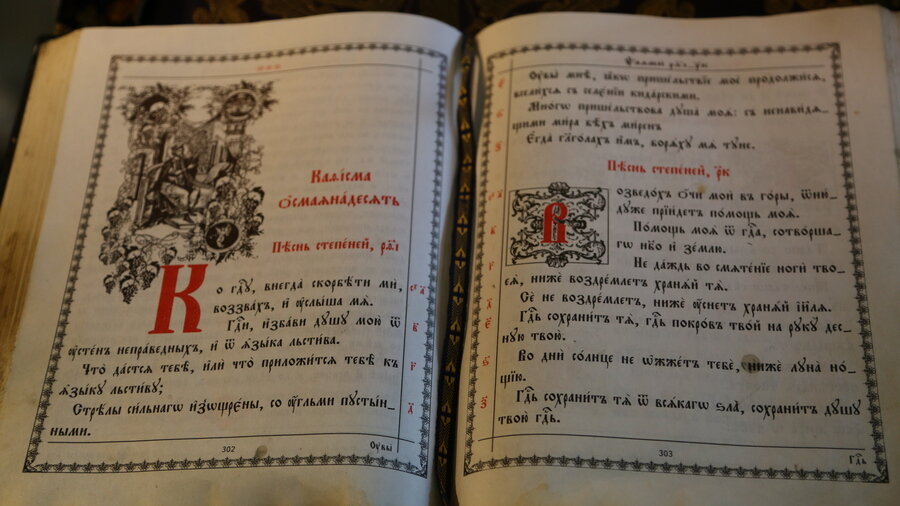 Каѳі́сма
ѻ҆смаѧна́десѧть
Пѣ́снь степе́ней, р҃ѳі
Ко гдⷭ҇у, внегда̀ скорбѣ́ти мѝ,
воззва́хъ, и҆ ᲂу҆слы́ша мѧ̀.
Гдⷭ҇и, и҆зба́ви дꙋ́шꙋ мою̀ ѿ
ᲂу҆сте́нъ непра́ведныхъ, и҆ ѿ ѧ҆зы́ка льсти́ва.
Что̀ да́стсѧ тебѣ̀, и҆лѝ что̀ приложи́тсѧ тебѣ̀ къ
ѧ҆зы́кꙋ льсти́вꙋ;
Стрѣ́лы си́льнагѡ и҆зѡщре́ны, со ᲂу҆́гльми пꙋсты́н_
ными.
302
Оу҆вы̀
Ѱалмы̀ р҃ѳі_р҃к
Оу҆вы̀ мнѣ̀, ꙗ҆́кѡ прише́льствїе моѐ продолжи́сѧ,
всели́хсѧ съ селе́нїи кида́рскими.
Мно́гѡ прише́льствова дꙋша̀ моѧ̀: съ ненави́дѧ_
щими ми́ра бѣ́хъ ми́ренъ
Е҆гда̀ глаго́лахъ и҆̀мъ, борѧ́хꙋ мѧ̀ тꙋ́не.
Пѣ́снь степе́ней, р҃к
Возведо́хъ ѻ҆́чи моѝ въ го́ры, ѿню́_
дꙋже прїи́детъ по́мощь моѧ̀.
По́мощь моѧ̀ ѿ гдⷭ҇а, сотво́рша_
гѡ нб҃о и҆ зе́млю.
Не да́ждь во смѧте́нїе ногѝ тво_
еѧ̀, нижѐ воздре́млетъ хранѧ́й тѧ̀.
Сѐ не воздре́млетъ, нижѐ ᲂу҆́снетъ хранѧ́й і҆и҃лѧ.
Гдⷭ҇ь сохрани́тъ тѧ̀, гдⷭ҇ь покро́въ тво́й на рꙋ́кꙋ дес_
нꙋ́ю твою̀.
Во днѝ со́лнце не ѡ҆жже́тъ тебѐ, нижѐ лꙋна̀ но́_
щїю.
Гдⷭ҇ь сохрани́тъ тѧ̀ ѿ всѧ́кагѡ ѕла̀, сохрани́тъ дꙋ́шꙋ
твою̀ гдⷭ҇ь.
303
Гдⷭ҇ь